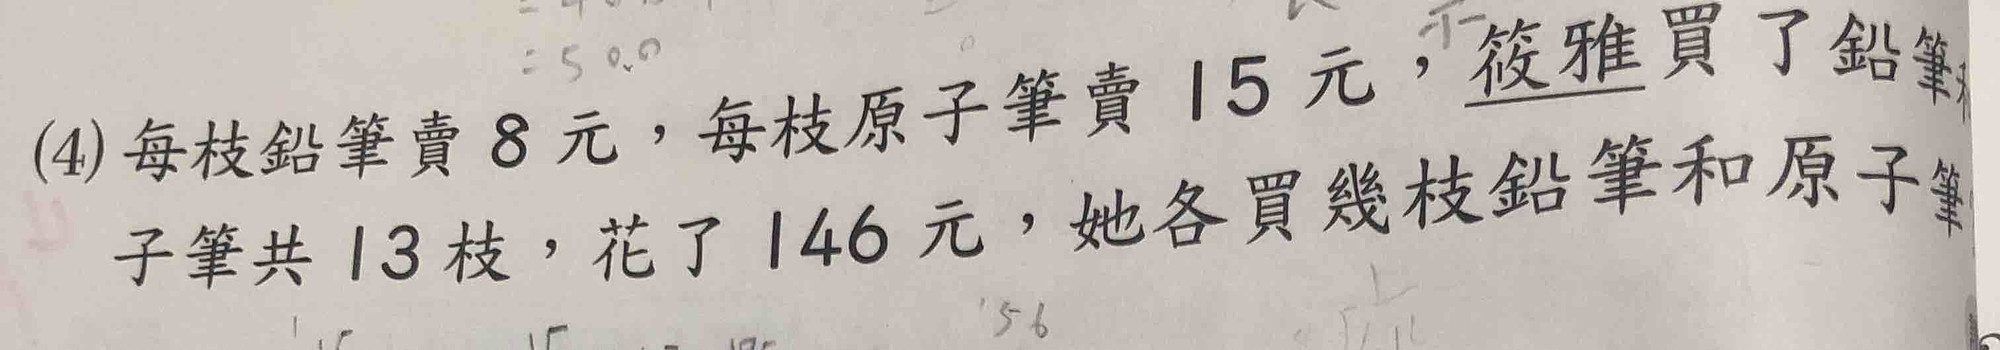 = 500
(4) 每枝鉛筆賣 8 元，每枝原子筆賣 15 元，筱雅買了鉛筆
子筆共 13 枝，花了 146 元，她各買幾枝鉛筆和原子筆
56